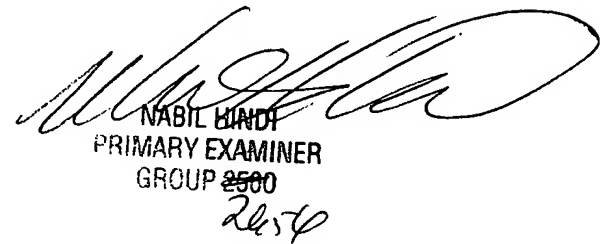 NABIL HINDI
PRIMARY EXAMINER
GROUP 2500